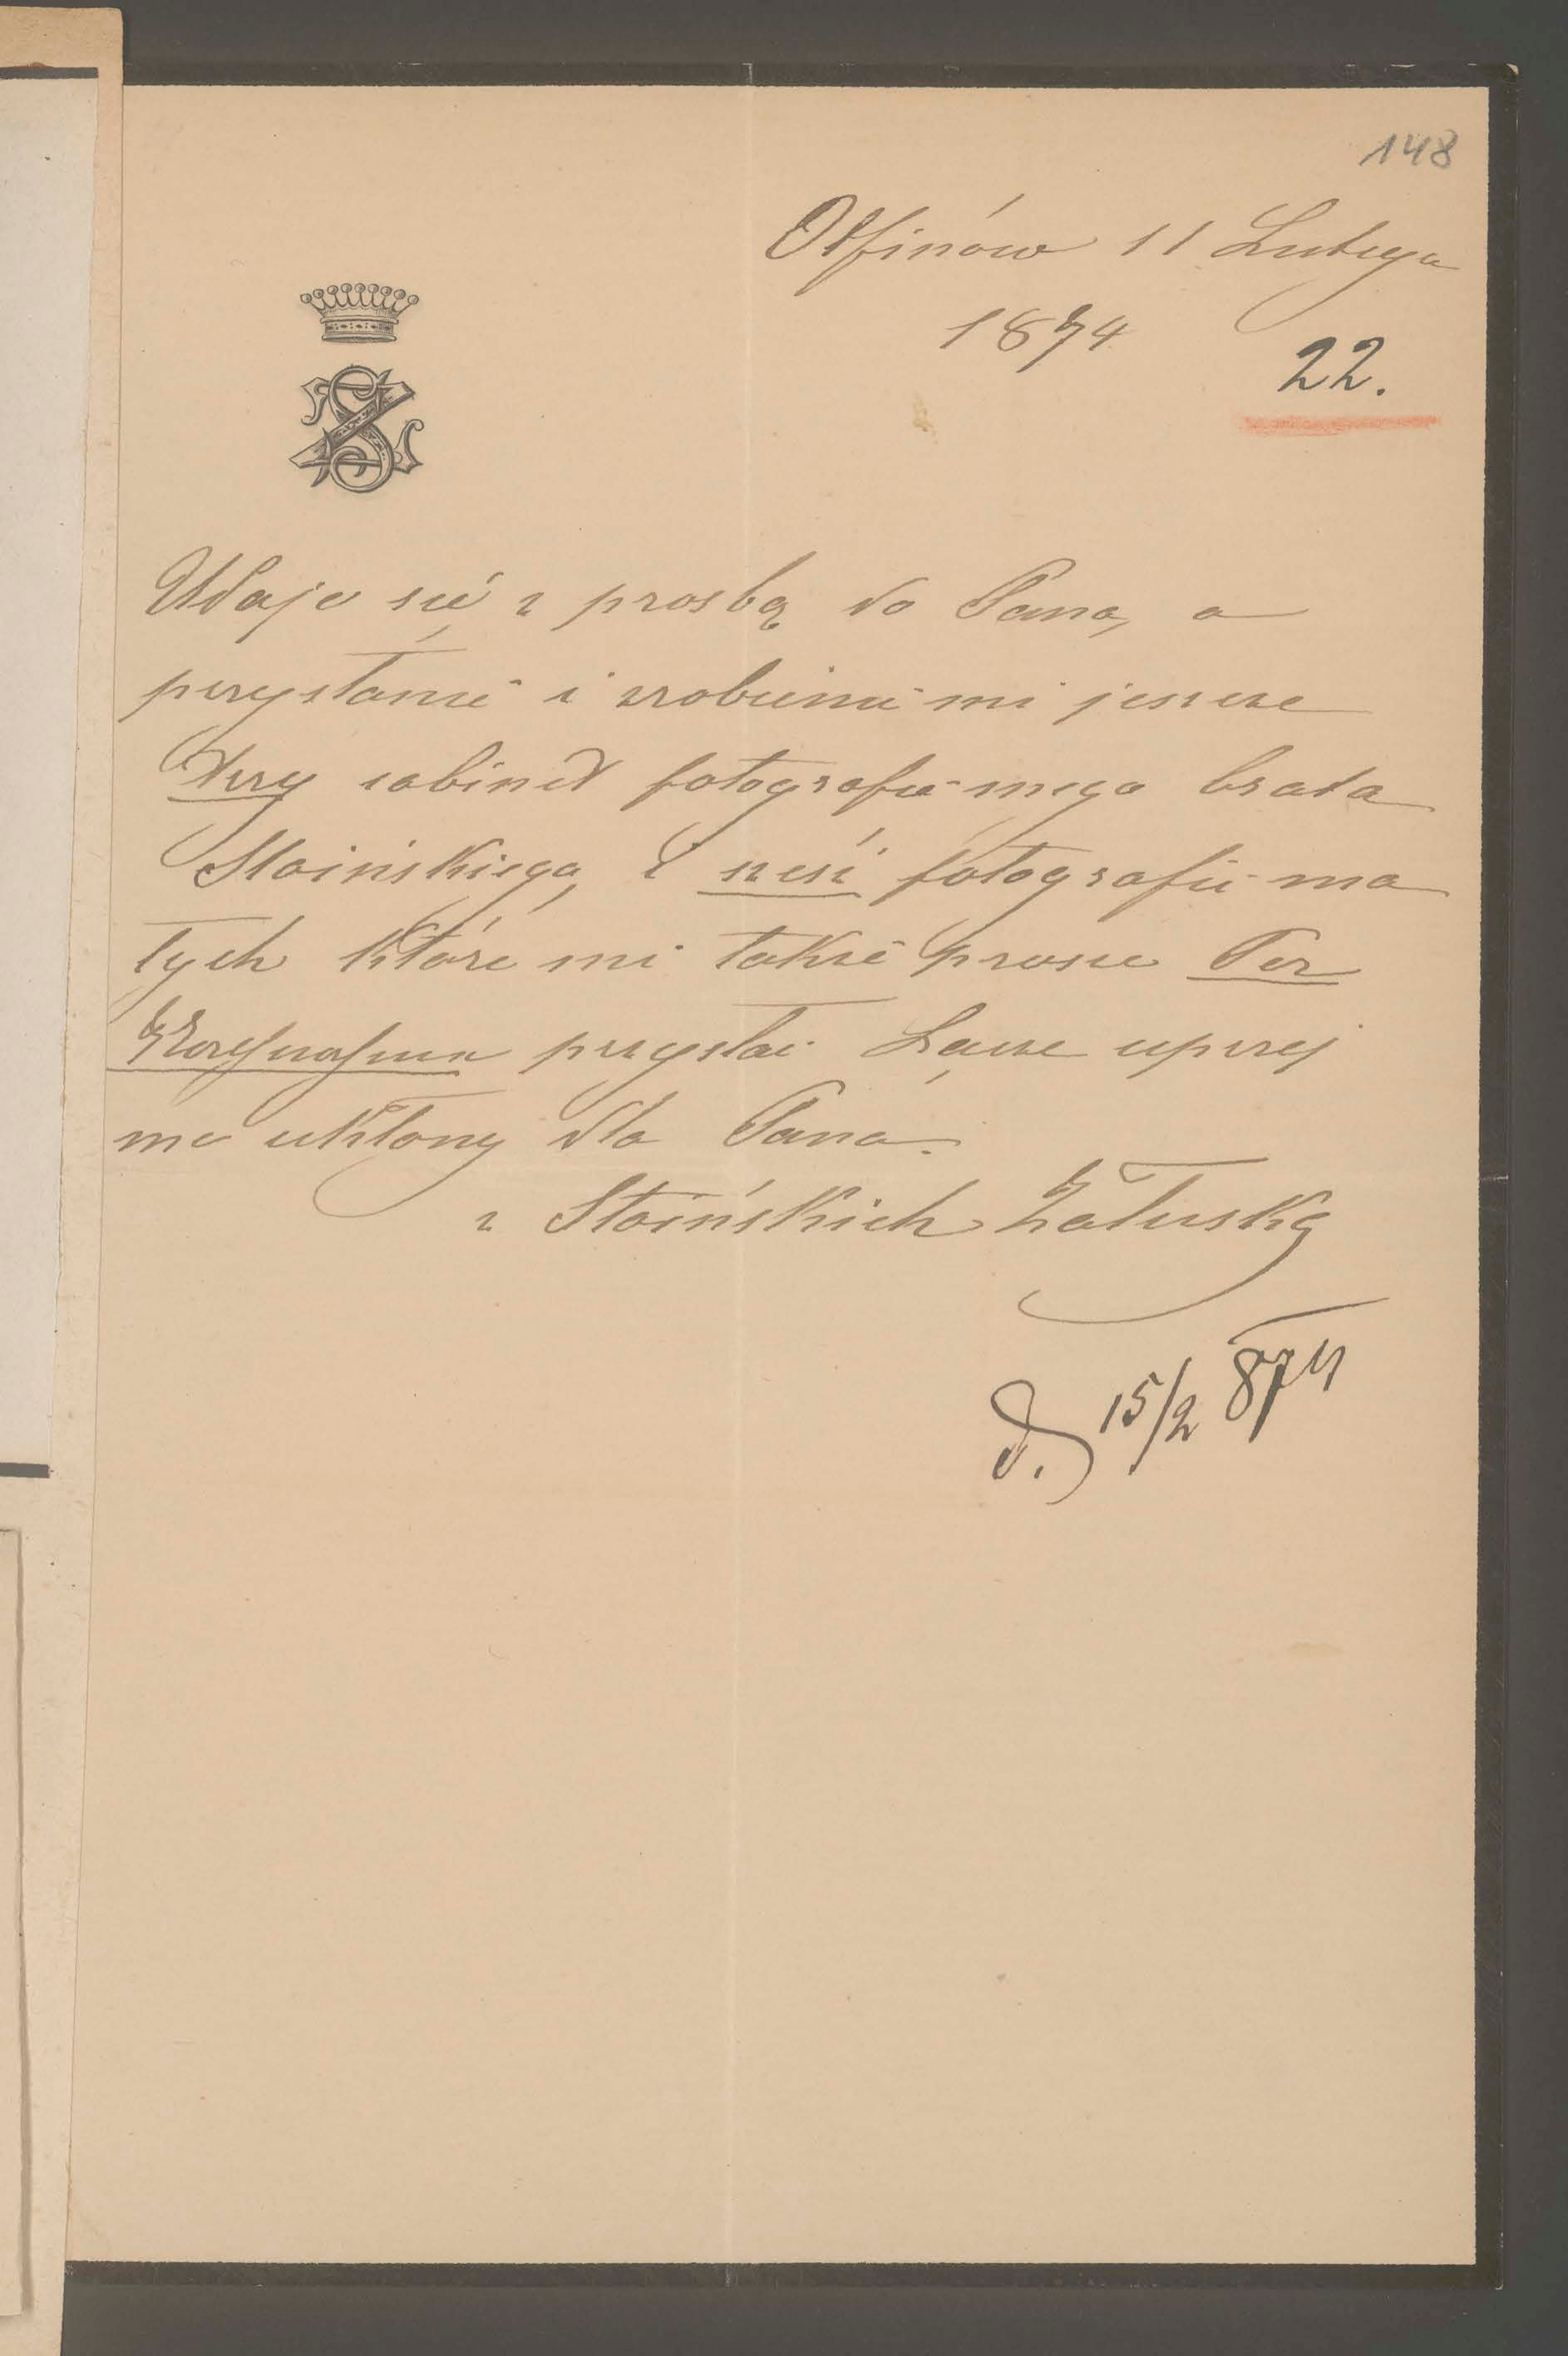 148
Otfinów 11 Lutego
1874
22.
Udaje sié z prosbą do Pana, o
przysłanié i zrobienié mi jeszcze
trzy cabinet fotografié mego brata
Stoińskiego, i sześć fotografié ma
łych które mi takze prosze Per
przysłać. Łącze uprzej
me ukłony dla Pana.
z Stoińskich Załuska
d. 15/2 874